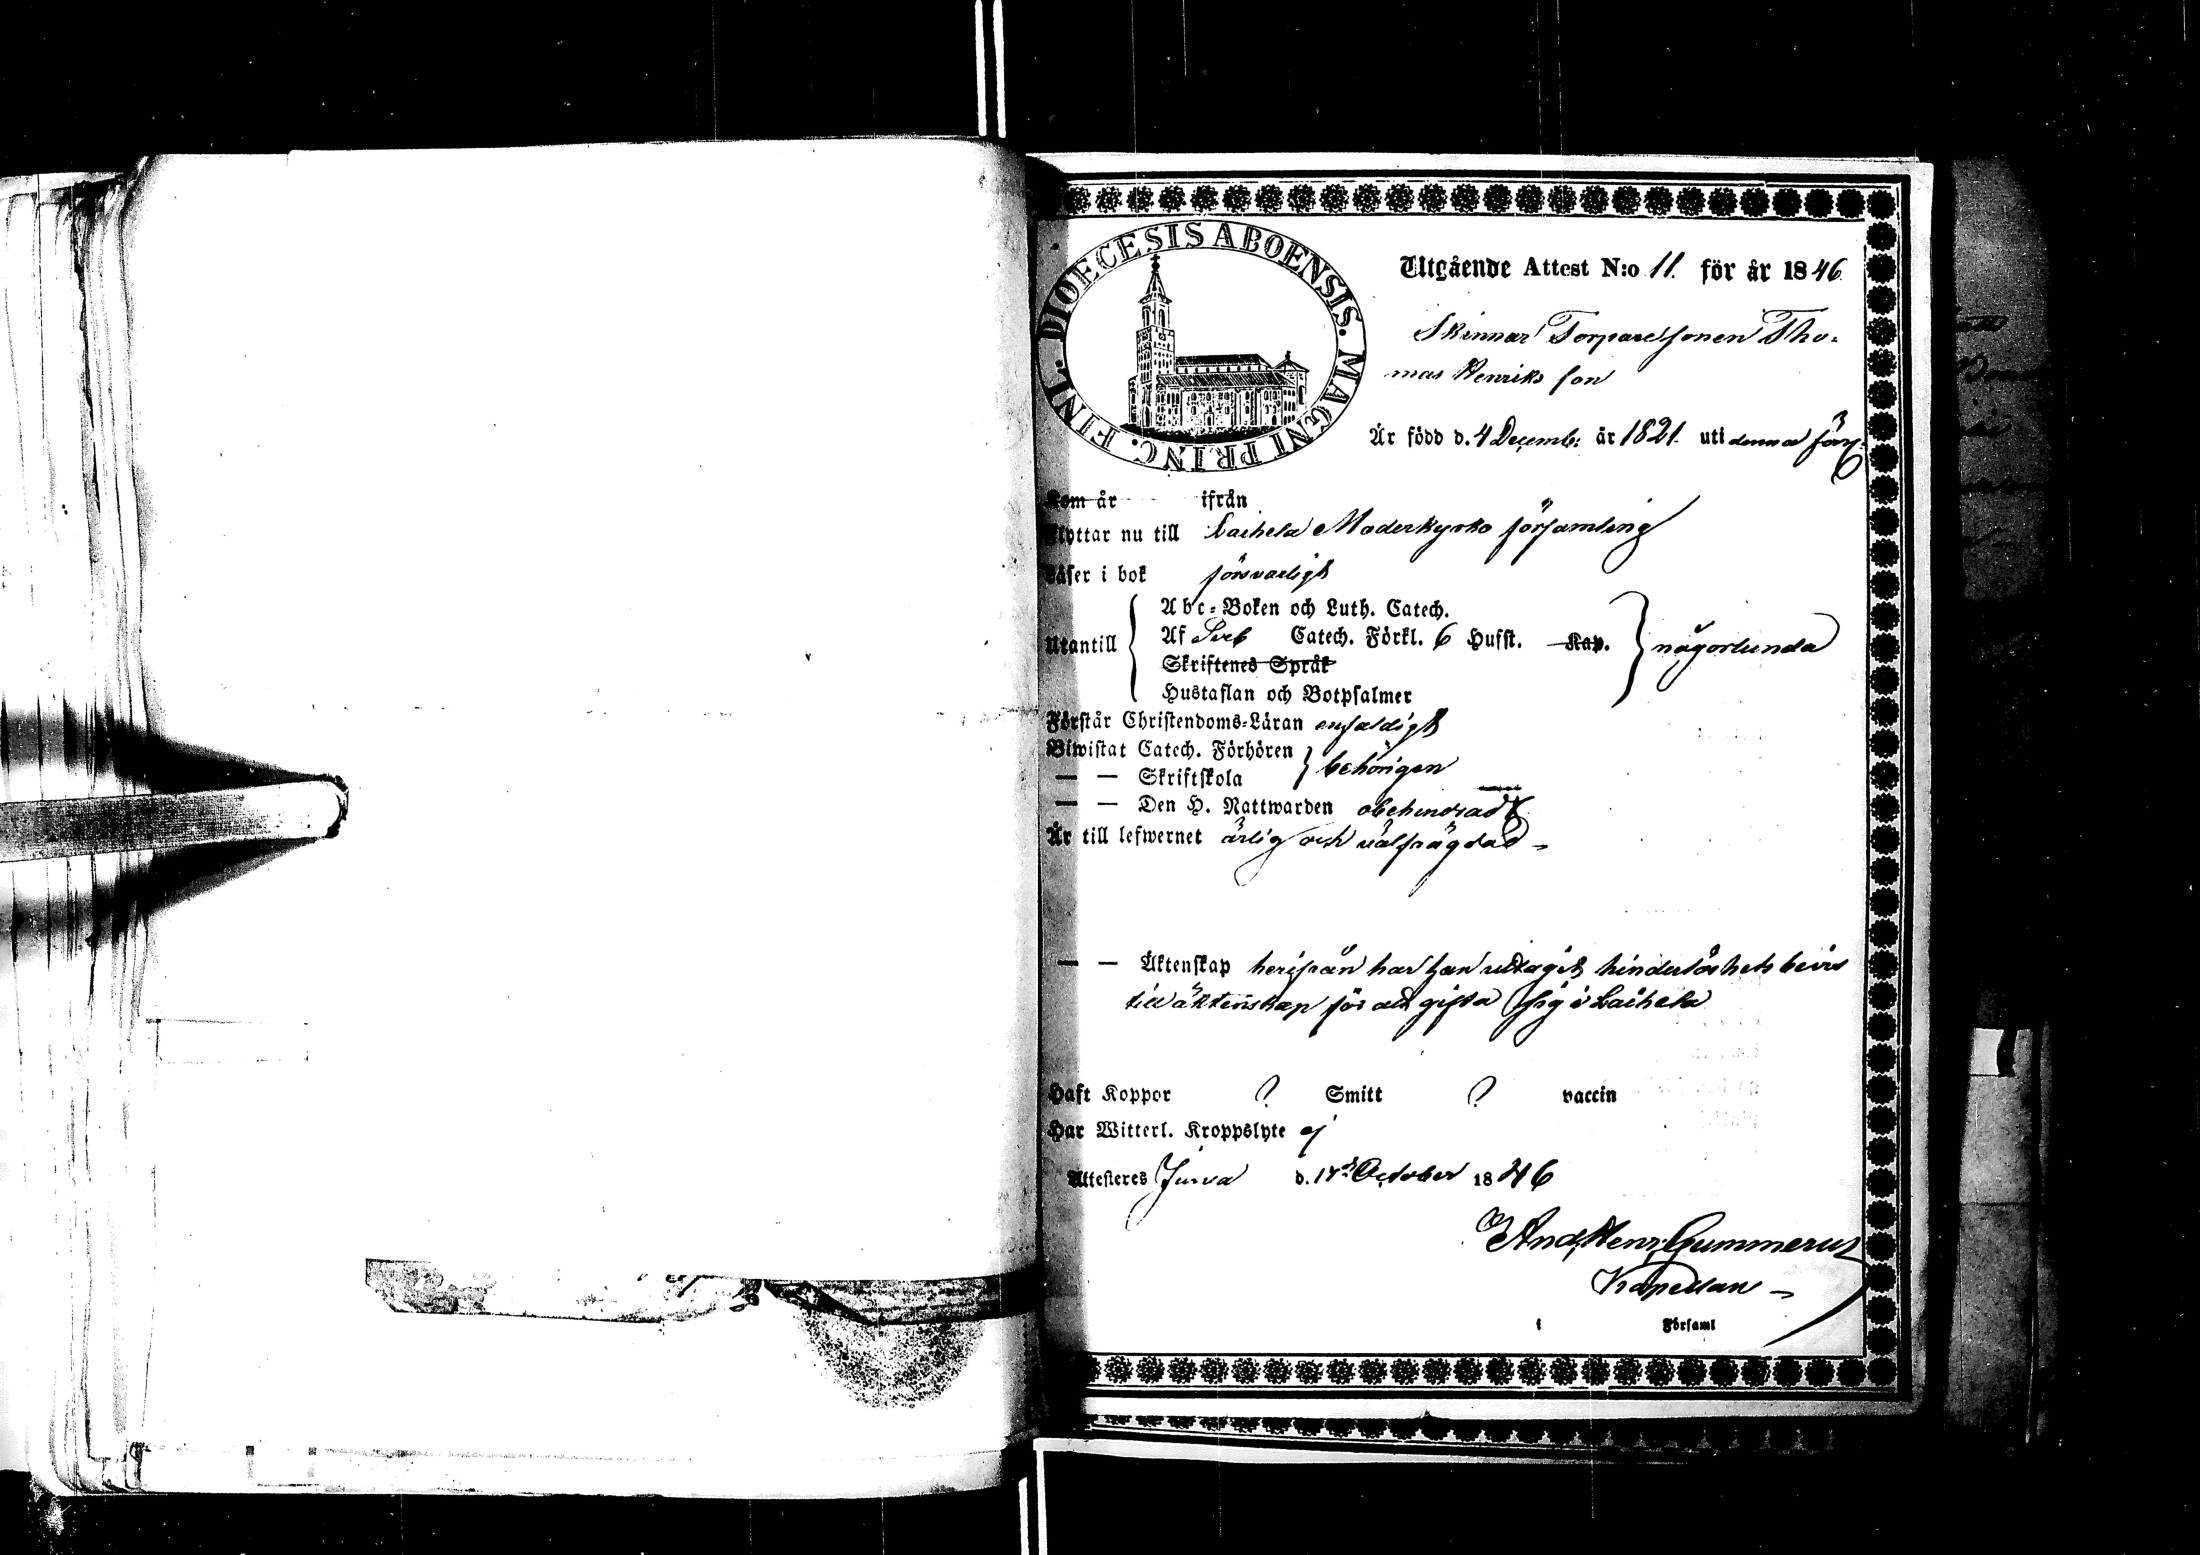 DIOECESIS ABOENSIS. MAGNI PRINC. FINL.
Utgående Attest N:o 11. för år 1846
Skinnar Torparesonen Tho-
mas Henriks son
Är född d. 4 Decemb: år 1821. uti denna förs:
Kom år ifrån
Flyttar nu till Laihela Moderkyrko församling
Läser i bok försvarligt
Utantill
Abc-Boken och Luth. Catech.
Af Sveb Catech. Förkl. 6 Hufst. Kap. någorlunda
Skriftenes Språk
Hustaflan och Botpsalmer
Förstår Christendoms-Läran enfaldigt
Biwistat Catech. Förhören
— — Skriftskola behörigen
— — Den H. Nattwarden obehindradt
Är till lefwernet ärlig och välfrägdad -
— — Äktenskap herifrån har han uttagit hinderlöshets bevis
till äktenskap för att gifta sig i Laihela
Haft Koppor ? Smitt ? vaccin
Har Witterl. Kroppslyte ej
Attesteres Jurva d. October 1846
And. Henr. Gummerus
Kapellan -
i Församl